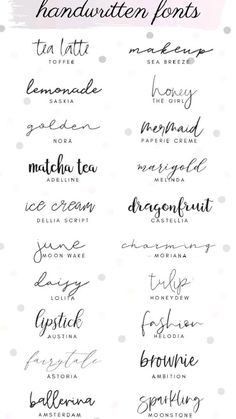 handwritten fonts
tea latte
TOFFEE
makeup
SEA BREEZE
lemonade
SASKIA
honey
THE GIRL
golden
NORA
mermaid
PAPERIE CREME
matcha tea
ADELLINE
marigold
MELINDA
ice cream
DELLIA SCRIPT
dragonfruit
CASTELLIA
june
MOON WAKE
charming
MORIANA
daisy
LOLITA
tulip
HONEYDEW
lipstick
AUSTINA
fashion
HELODIA
fairytale
ASTORIA
brownie
AMBITION
ballerina
AMSTERDAM
sparkling
MOONSTONE